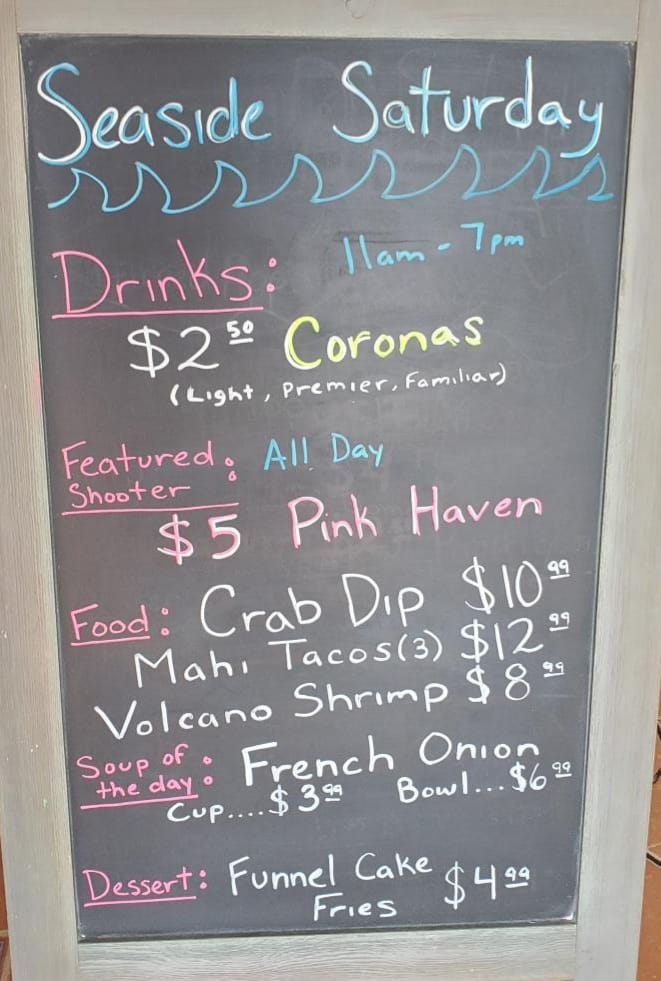 Seaside Saturday
11am - 7pm
Drinks:
$2.50 Coronas
(Light, Premier, Familiar)
Featured Shooter: All Day
$5 Pink Haven
Food: Crab Dip $10.99
Mahi Tacos (3) $12.99
Volcano Shrimp $8.99
Soup of the day: French Onion
Cup....$3.99 Bowl...$6.99
Dessert: Funnel Cake Fries $4.99